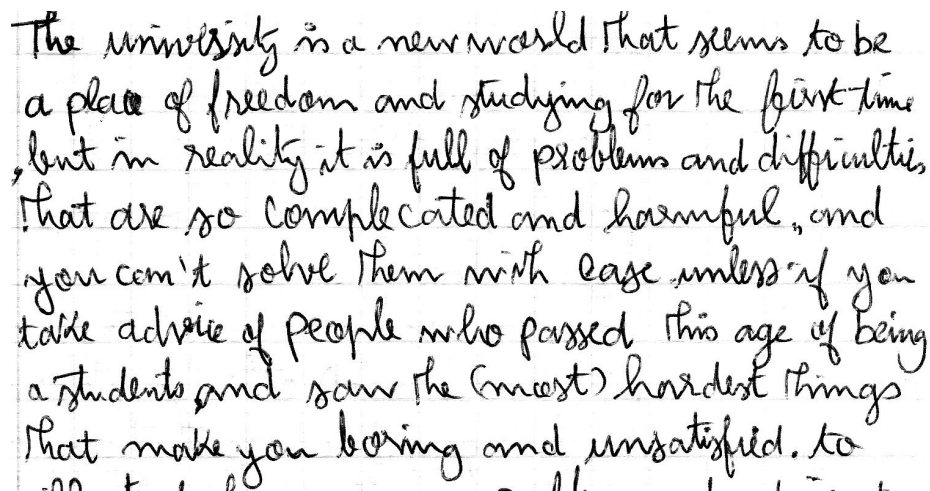 The university is a new world that seems to be
a place of freedom and studying for the first time
, but in reality it is full of problems and difficulties
that are so complecated and harmful, and
you can't solve them with ease unless if you
take advice of people who passed this age of being
a students and saw the (most) hardest things
that make you boring and unsatisfied. to